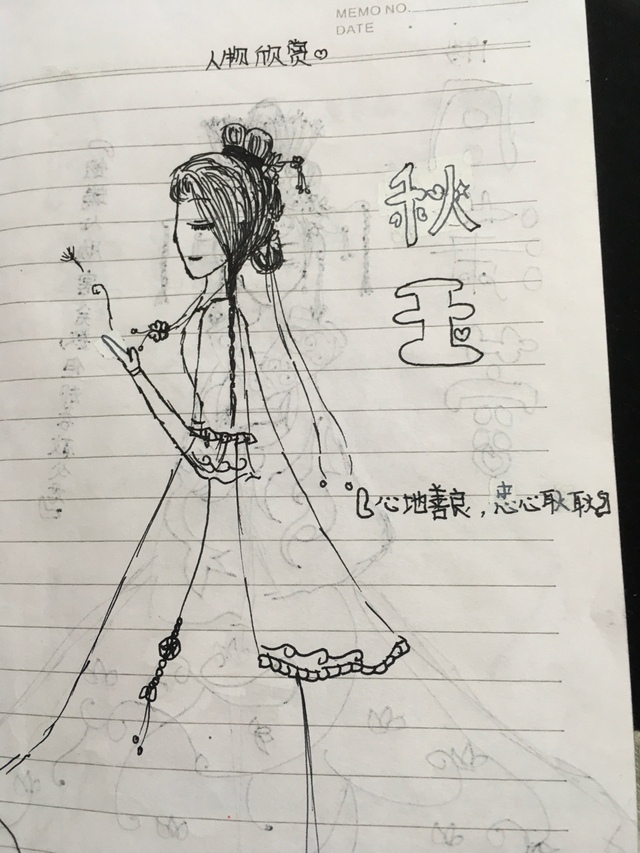 MEMO NO.
DATE
人物欣赏♡
秋
玉
【心地善良，忠心耿耿】